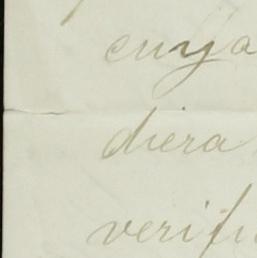 cuya
diera
verifi